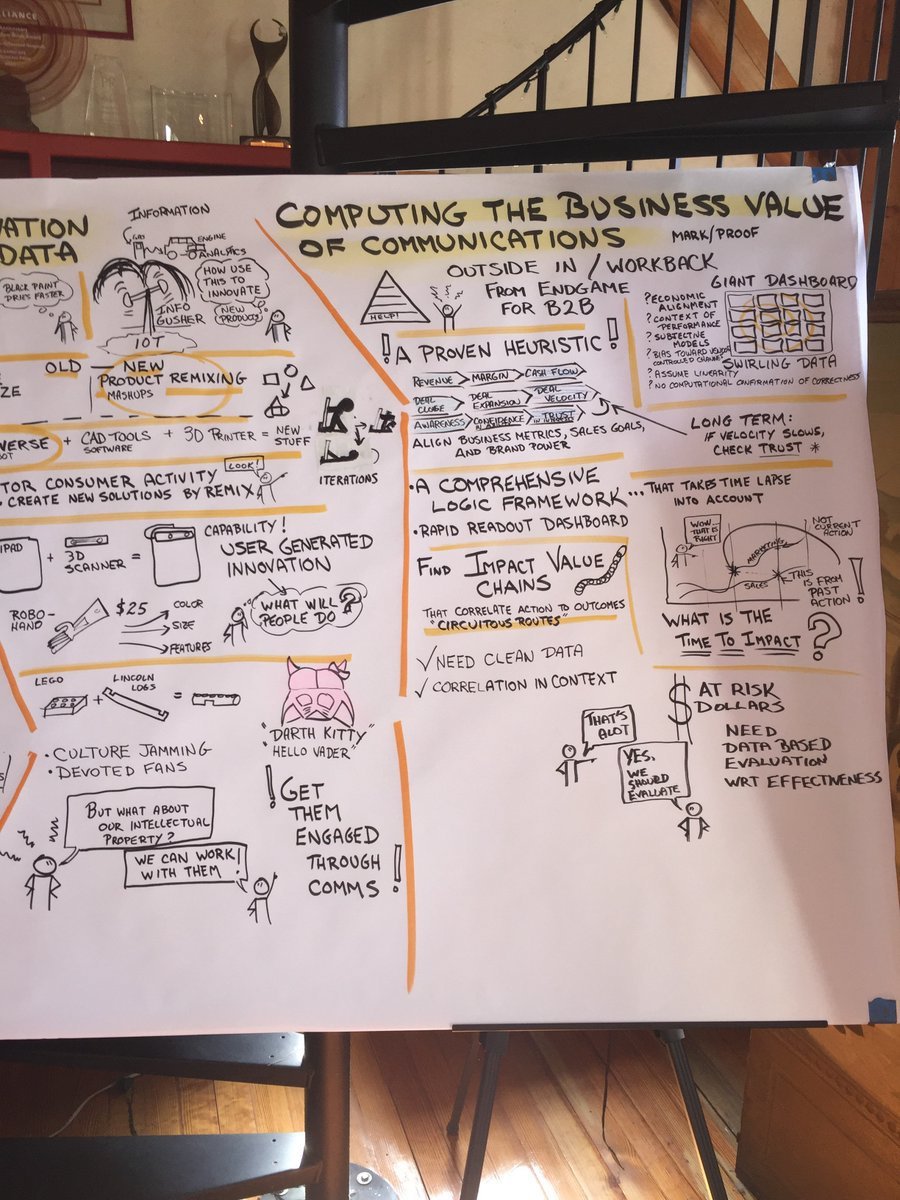 LLIANCE
VATION
DATA
INFORMATION
GAS
ENGINE
ANALYTICS
BLACK PAINT
DRIES FASTER
HOW USE
THIS TO
INNOVATE
NEW
PRODUCTS
INFO
GUSHER
IOT
OLD
NEW
PRODUCT REMIXING
MASHUPS
ZE
VERSE
BOT
+ CAD TOOLS
SOFTWARE
+ 3D PRINTER = NEW
STUFF
ITERATIONS
TOR CONSUMER ACTIVITY
CREATE NEW SOLUTIONS BY REMIX
LOOK!
IPAD
+ 3D
SCANNER =
CAPABILITY!
USER GENERATED
INNOVATION
ROBO-
HAND
$25
COLOR
SIZE
FEATURES
WHAT WILL
PEOPLE DO?
LEGO
+
LINCOLN
LOGS
=
"DARTH KITTY"
"HELLO VADER"
• CULTURE JAMMING
• DEVOTED FANS
BUT WHAT ABOUT
OUR INTELLECTUAL
PROPERTY?
WE CAN WORK
WITH THEM!
! GET
THEM
ENGAGED
THROUGH
COMMS!
COMPUTING THE BUSINESS VALUE
OF COMMUNICATIONS
MARK/PROOF
OUTSIDE IN / WORKBACK
FROM ENDGAME
FOR B2B
HELP!
! A PROVEN HEURISTIC!
REVENUE
MARGIN
CASH FLOW
DEAL
CLOSE
DEAL
EXPANSION
DEAL
VELOCITY
AWARENESS
CONFIDENCE
TRUST
ALIGN BUSINESS METRICS, SALES GOALS,
AND BRAND POWER
GIANT DASHBOARD
? ECONOMIC
ALIGNMENT
? CONTEXT OF
PERFORMANCE
? SUBJECTIVE
MODELS
? BIAS TOWARD VENDOR
CONTROLLED CHANNEL
? ASSUME LINEARITY
? NO COMPUTATIONAL CONFIRMATION OF CORRECTNESS
SWIRLING DATA
LONG TERM:
IF VELOCITY SLOWS,
CHECK TRUST *
• A COMPREHENSIVE
LOGIC FRAMEWORK
• RAPID READOUT DASHBOARD
...THAT TAKES TIME LAPSE
INTO ACCOUNT
WOW.
THAT IS
RIGHT
MARKETING
SALES
NOT
CURRENT
ACTION
THIS
IS FROM
PAST
ACTION!
FIND IMPACT VALUE
CHAINS
THAT CORRELATE ACTION TO OUTCOMES
"CIRCUITOUS ROUTES"
WHAT IS THE
TIME TO IMPACT?
✓ NEED CLEAN DATA
✓ CORRELATION IN CONTEXT
$ AT RISK
DOLLARS
NEED
DATA BASED
EVALUATION
WRT EFFECTIVENESS
THAT'S
ALOT
YES,
WE
SHOULD
EVALUATE